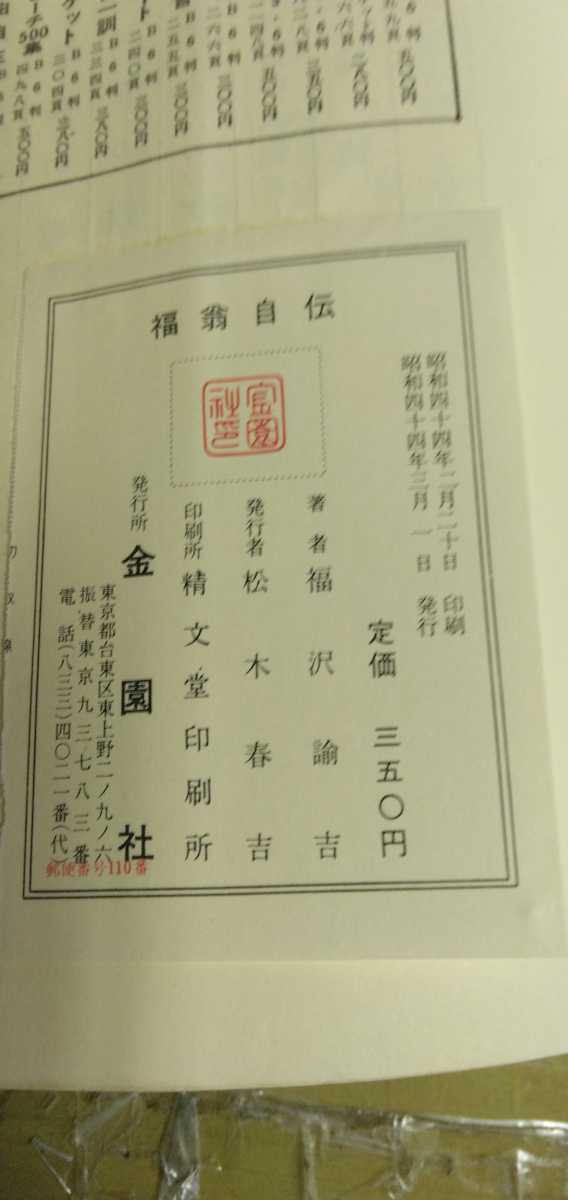 五〇〇円
ケット判
二八〇円
三五〇円
五〇〇円
二六六頁
三〇〇円
二五五頁
三〇〇円
ート
B6判
二四〇頁
三〇〇円
二訓
B6判
三三四頁
三八〇円
ケット
B6判
三〇四頁
三八〇円
ーチ500集
B6判
四九八頁
五〇〇円
福翁自伝
昭和四十四年二月二十日 印刷
昭和四十四年三月一日 発行
定価 三五〇円
著者 福沢諭吉
発行者 松木春吉
印刷所 精文堂印刷所
発行所 金園社
東京都台東区東上野二ノ九ノ六
振替東京九三七八三番
電話(八三三)四〇二一番(代)
郵便番号110番
金園社印
切取線